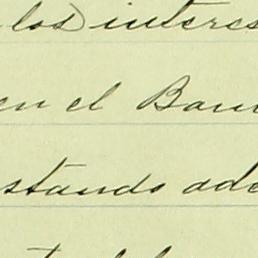 los) interes
en el Ban
stando ade